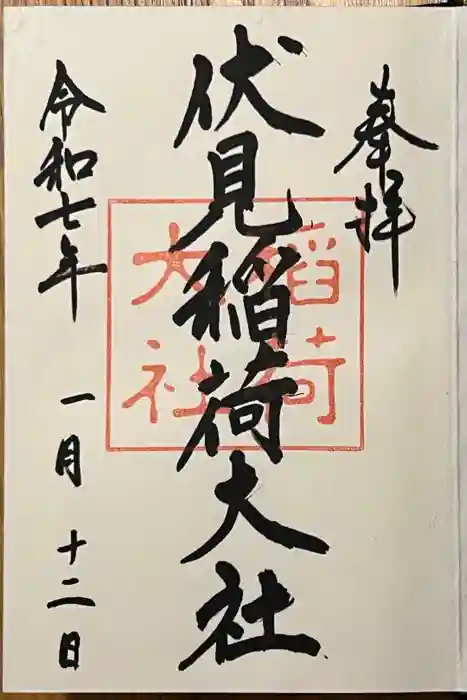 奉拝
伏見稲荷大社
稲荷
大社
令和七年
一月
十二日